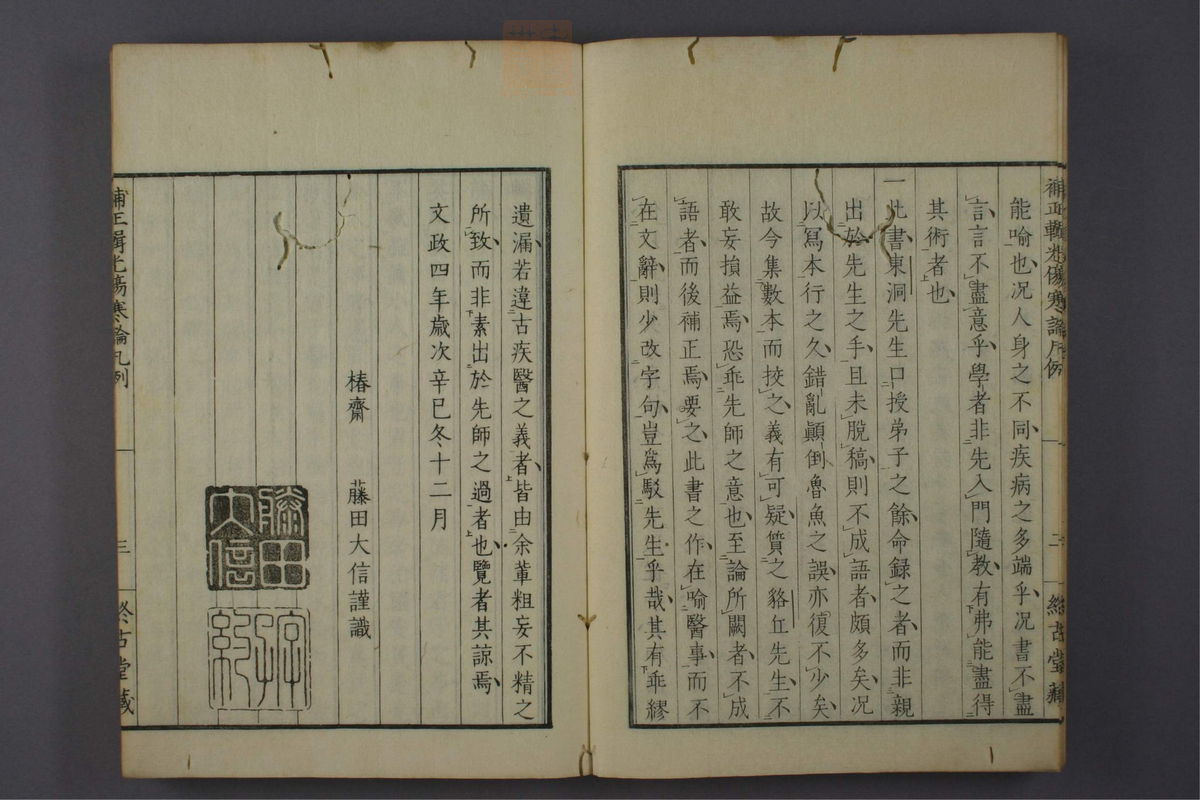 補正輯光傷寒論凡例 二 終古堂藏
能喻也況人身之不同疾病之多端乎況書不盡
言言不盡意乎學者非先入門隨教有弗能盡得
其術者也
一此書東洞先生口授弟子之餘命録之者而非親
出於先生之手且未脫稿則不成語者頗多矣況
以寫本行之久錯亂顚倒魯魚之誤亦復不少矣
故今集數本而挍之義有可疑質之貉丘先生不
敢妄損益焉恐乖先師之意也至論所闕者不成
語者而後補正焉要之此書之作在喻醫事而不
在文辭則少改字句豈爲駁先生乎哉其有乖繆
遺漏若違古疾醫之義者皆由余輩粗妄不精之
所致而非素出於先師之過者也覽者其諒焉
文政四年歲次辛巳冬十二月
椿齋 藤田大信謹識
藤田大信
補正輯光傷寒論凡例 三 終古堂藏